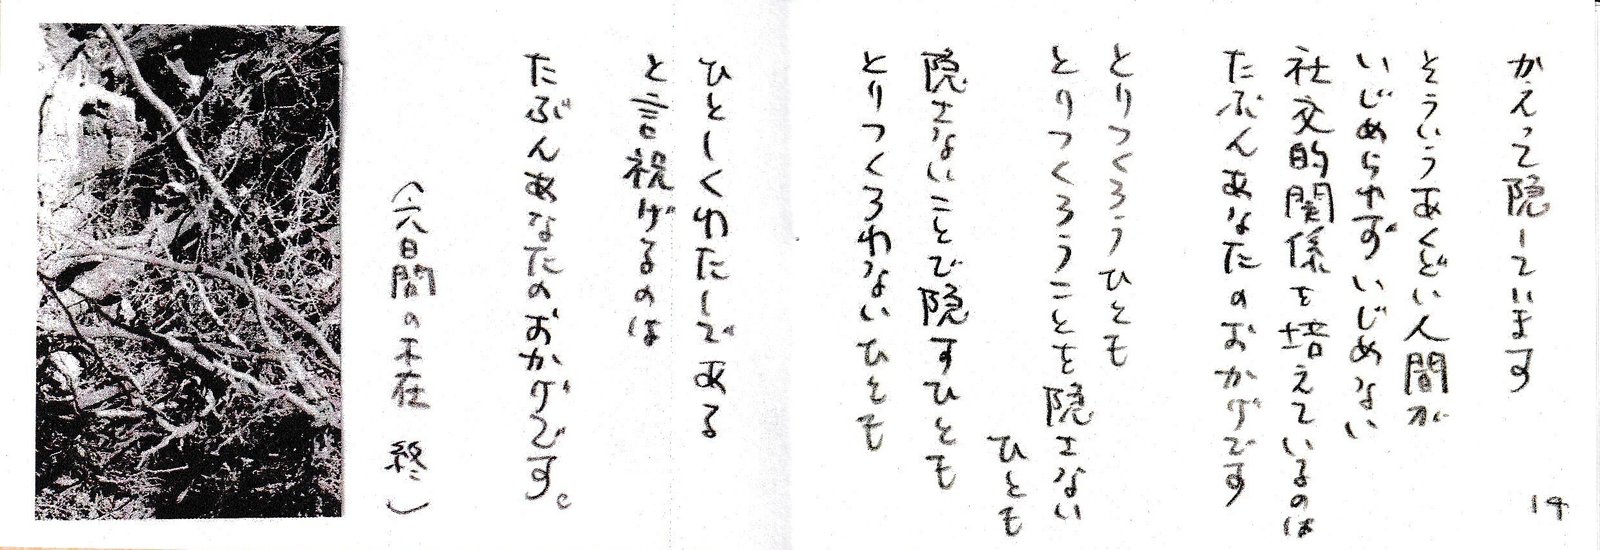 かえって隠しています
そういうあくどい人間が
いじめられず いじめない
社交的関係を培えているのは
たぶんあなたのおかげです
とりつくろうひとも
とりつくろうことを隠さない
ひとも
隠さないことで隠すひとも
とりつくろわないひとも
ひとしくわたしである
と言祝げるのは
たぶんあなたのおかげです。
(六日間の不在 終)
14